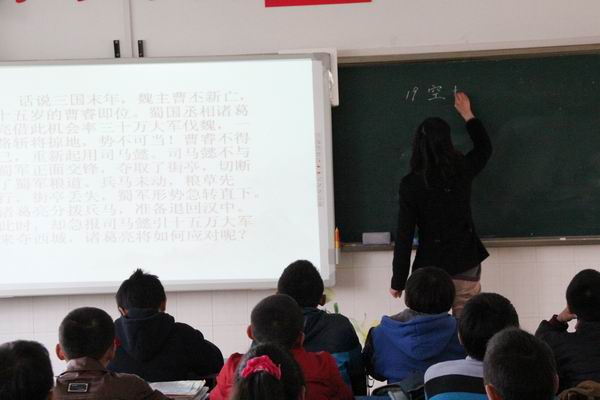 话说三国末年，魏主曹丕新亡，
十五岁的曹睿即位。蜀国丞相诸葛
亮借此机会率三十万大军伐魏，一
路斩将掠地，势不可当！曹睿不得
已，重新起用司马懿。司马懿不与
蜀军正面交锋，夺取了街亭，切断
了蜀军粮道。兵马未动，粮草先
行，街亭丢失，蜀军形势急转直下。
诸葛亮分拨兵马，准备退回汉中。
此时，却急报司马懿引十五万大军
来夺西城，诸葛亮将如何应对呢？
19 空